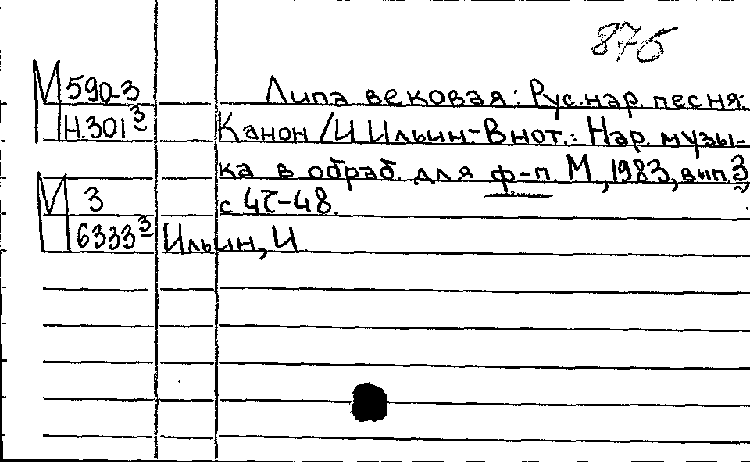 87б
М 590-3
Н.301³
Липа вековая: Рус. нар. песня:
Канон / И Ильин - В нот.: Нар. музы-
ка в обраб. для ф-п М, 1983, вып. 3
с 47-48.
М 3
6333³
Ильин, И